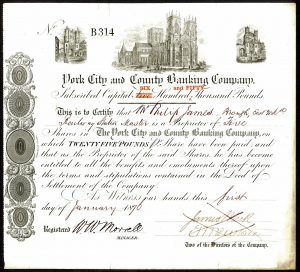 No B314
York City and County Banking Company.
SIX and FIFTY
Subscribed Capital Five Hundred Thousand Pounds.
This is to Certify that Mr Philip James,
is a Proprietor of Five
Shares in The York City and County Banking Company, on
which TWENTY FIVE POUNDS per Share have been paid, and
that as the Proprietor of the said Shares he has become
entitled to all the benefits and emoluments thereof upon
the terms and stipulations contained in the Deed of
Settlement of the Company.
As Witness our hands this first
day of January 1876
Registered
MANAGER.
Two of the Directors of the Company.